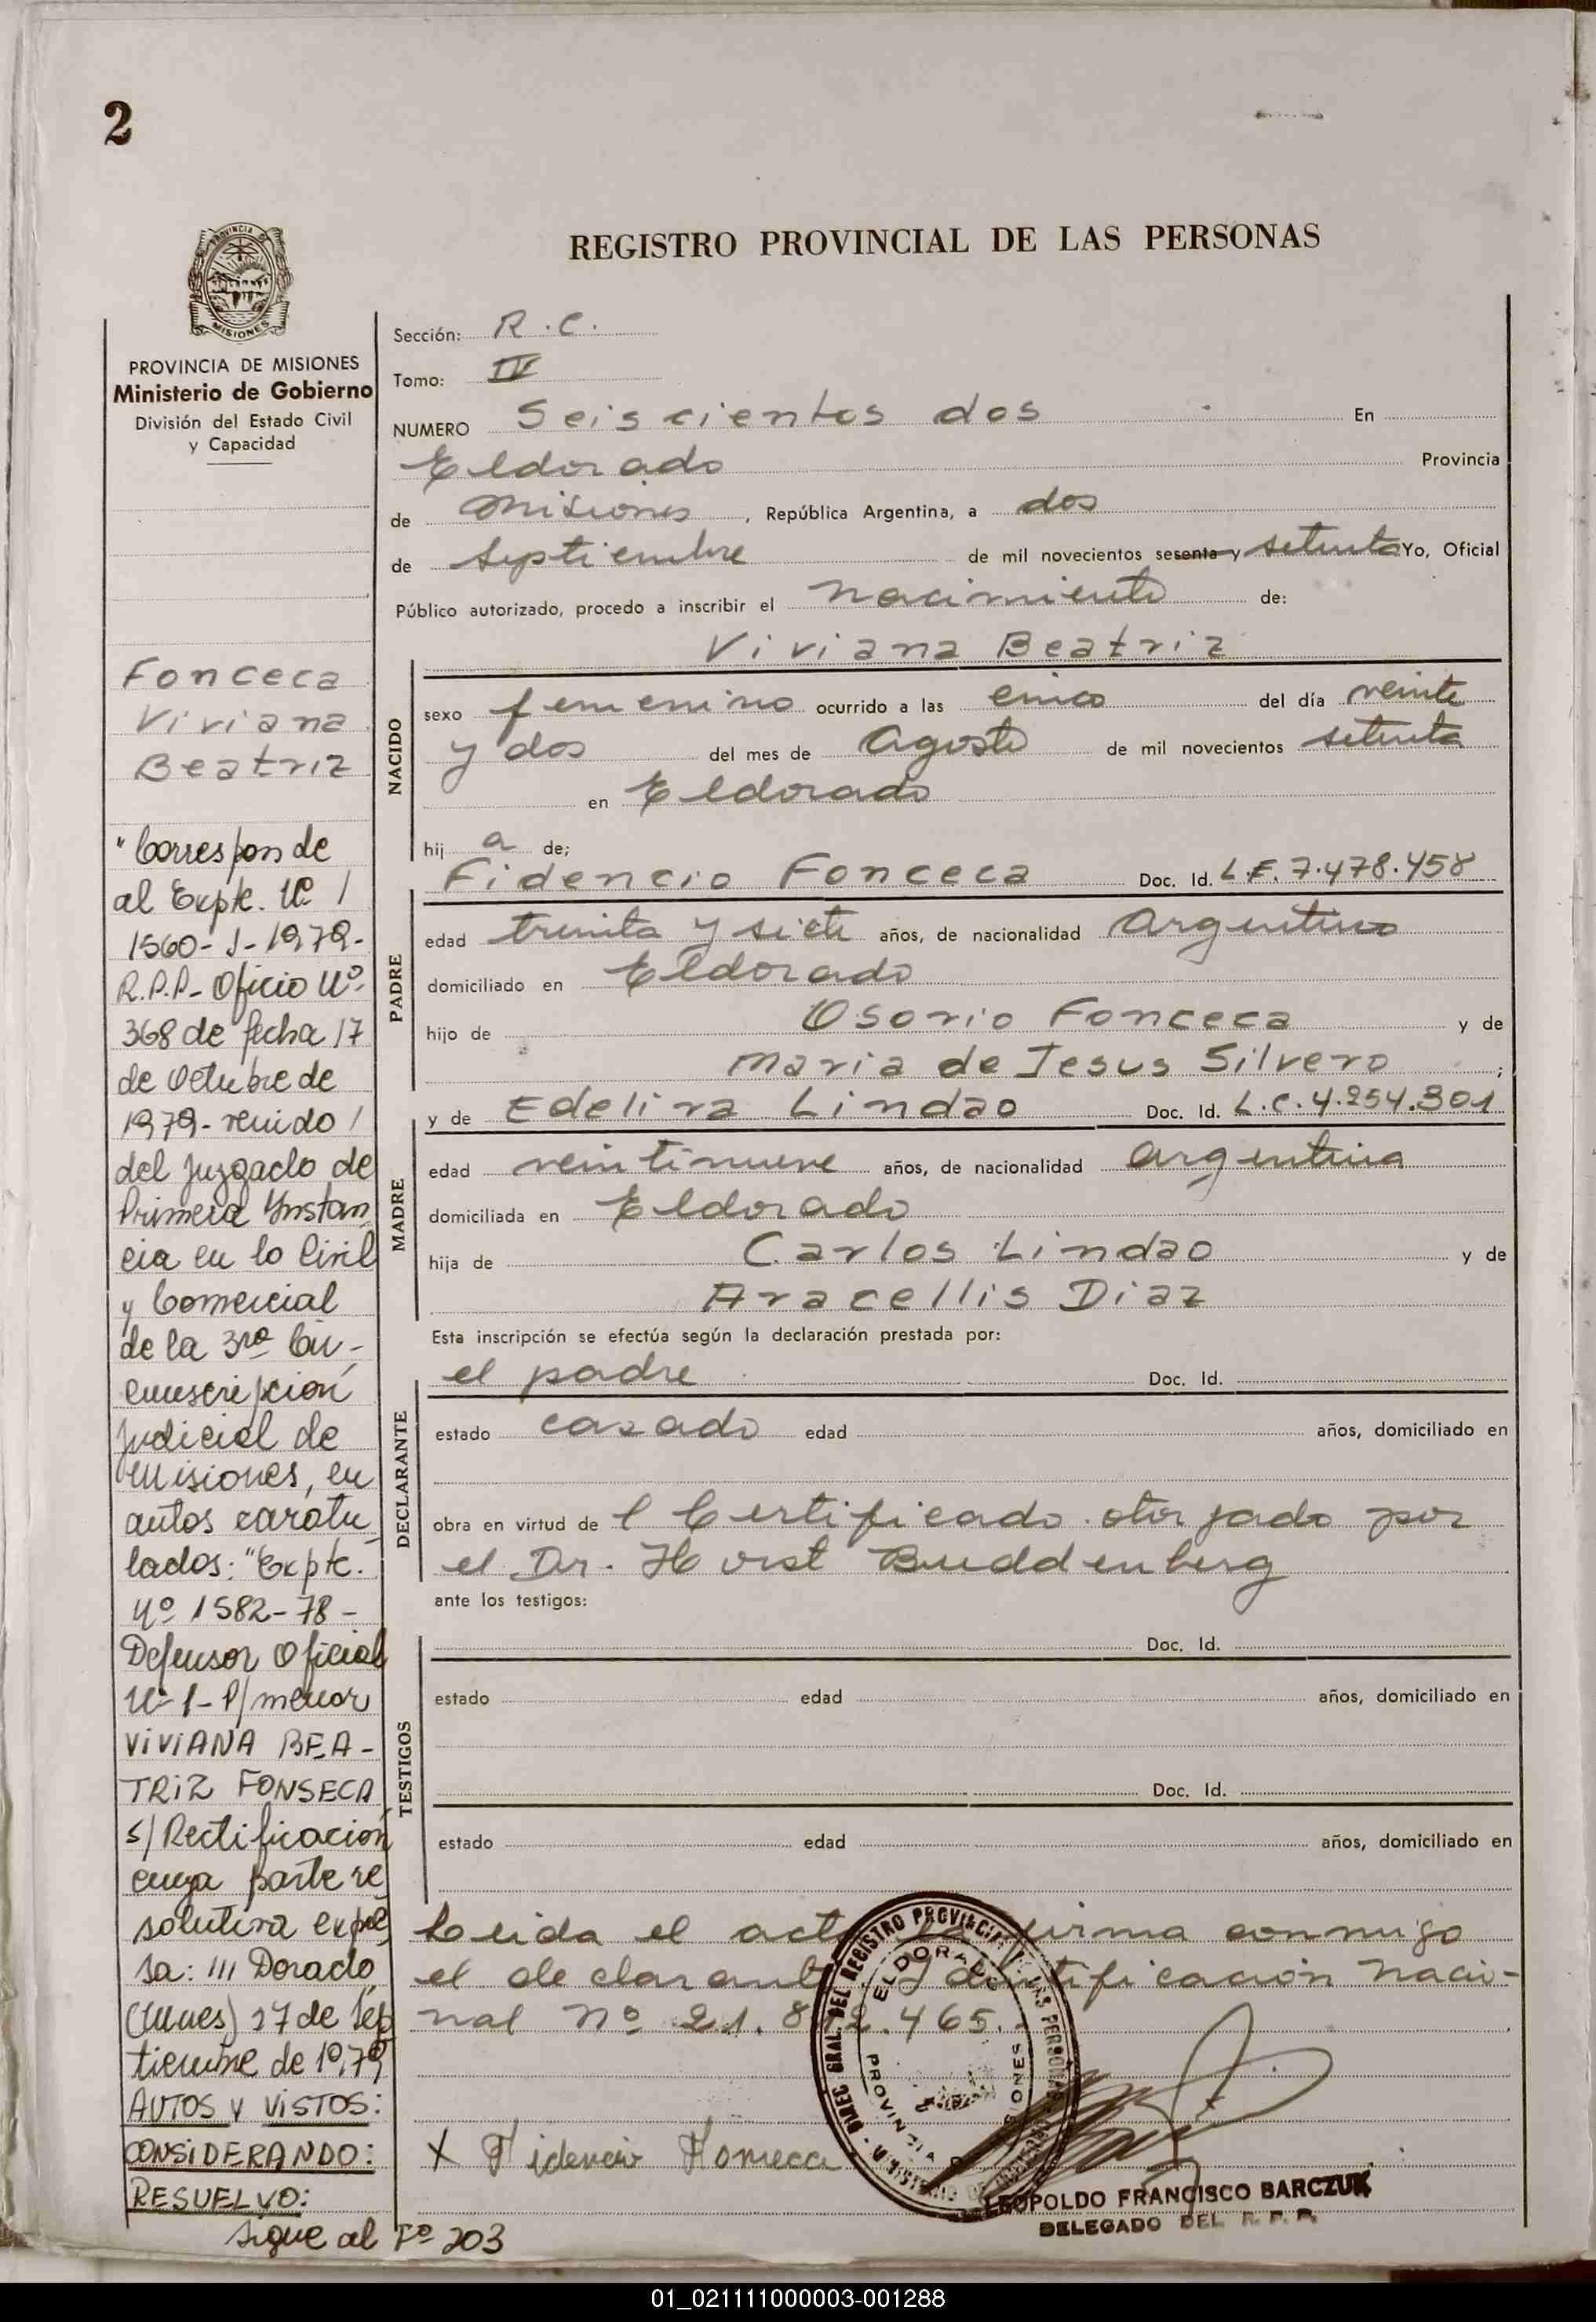 2
PROVINCIA DE MISIONES
Ministerio de Gobierno
División del Estado Civil
y Capacidad
Fonceca
Viviana
Beatriz
"Corresponde
al Expte. Nº /
1560-J-1979-
R.P.P- Oficio Nº
368 de fecha 17
de Octubre de
1979- venido /
del Juzgado de
Primera Instan
cia en lo Civil
y Comercial
de la 3ra Cir-
cunscripción
Judicial de
Misiones, en
autos caratu
lados: "Expte.
Nº 1582-78-
Defensor Oficial
Nº 1- P/menor
VIVIANA BEA-
TRIZ FONSECA
s/Rectificación
cuya parte re
solutiva expre
sa: /// Dorado
(Mnes) 27 de Sep
tiembre de 1979
AUTOS Y VISTOS:
CONSIDERANDO:
RESUELVO:
sigue al Fº 203
REGISTRO PROVINCIAL DE LAS PERSONAS
Sección: R.C.
Tomo: IV
NUMERO Seiscientos dos En
Eldorado Provincia
de Misiones, República Argentina, a dos
de Septiembre de mil novecientos sesenta y setenta Yo, Oficial
Público autorizado, procedo a inscribir el nacimiento de:
Viviana Beatriz
NACIDO
sexo femenino ocurrido a las cinco del día veinte
y dos del mes de Agosto de mil novecientos setenta
en Eldorado
hij a de;
Fidencio Fonceca Doc. Id. L.E. 7.478.458
PADRE
edad treinta y siete años, de nacionalidad Argentino
domiciliado en Eldorado
hijo de Osorio Fonceca y de
Maria de Jesus Silvero;
y de Edelira Lindao Doc. Id. L.C. 4.254.301
MADRE
edad veintinueve años, de nacionalidad argentina
domiciliada en Eldorado
hija de Carlos Lindao y de
Aracellis Diaz
Esta inscripción se efectúa según la declaración prestada por:
el padre Doc. Id.
DECLARANTE
estado casado edad años, domiciliado en
obra en virtud de l Certificado otorgado por
el Dr. Horst Buddenberg
ante los testigos:
Doc. Id.
TESTIGOS
estado edad años, domiciliado en
Doc. Id.
estado edad años, domiciliado en
Leida el acta la firma conmigo
el declarante Identificación Nacio-
nal Nº 21.8 2.465.
DIREC. GRAL. DEL REGISTRO PROVINCIAL DE LAS PERSONAS
ELDORADO
PROVINCIA MISIONES
X Fidencio Fonseca
LEOPOLDO FRANCISCO BARCZUK
DELEGADO DEL R. P. P.
01_021111000003-001288